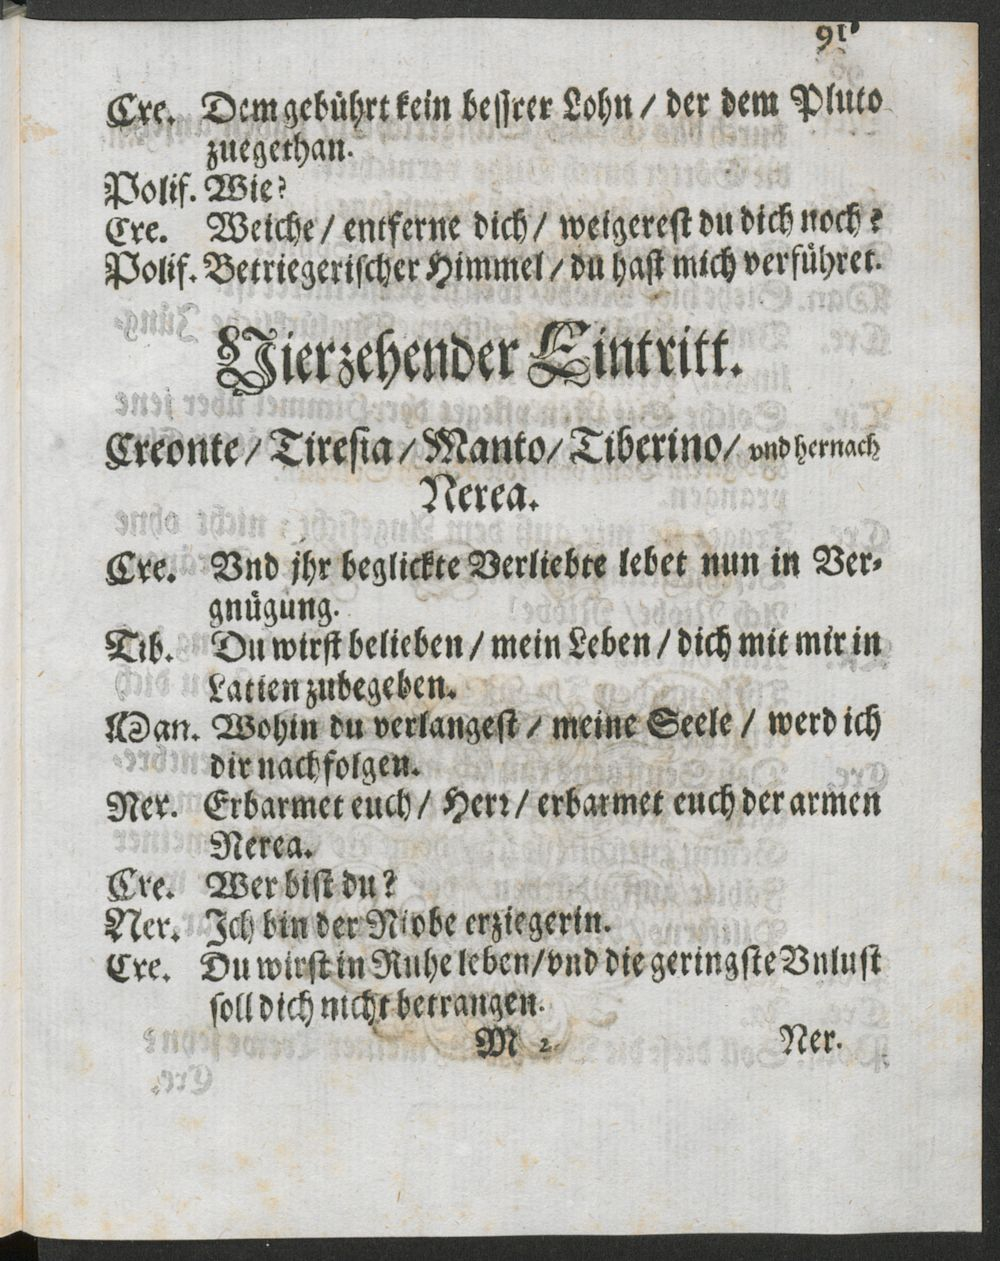 91
Cre. Dem gebührt kein bessrer Lohn / der dem Pluto
zuegethan.
Polif. Wie?
Cre. Weiche / entferne dich / weigerest du dich noch?
Polif. Betriegerischer Himmel / du hast mich verführet.
Vierzehender Eintritt.
Creonte / Tiresia / Manto / Tiberino / vnd hernach
Nerea.
Cre. Vnd jhr beglickte Verliebte lebet nun in Ver-
gnügung.
Tib. Du wirst belieben / mein Leben / dich mit mir in
Latien zubegeben.
Man. Wohin du verlangest / meine Seele / werd ich
dir nachfolgen.
Ner. Erbarmet euch / Herr / erbarmet euch der armen
Nerea.
Cre. Wer bist du?
Ner. Ich bin der Niobe erziegerin.
Cre. Du wirst in Ruhe leben / vnd die geringste Vnlust
soll dich nicht betrangen.
M 2 Ner.